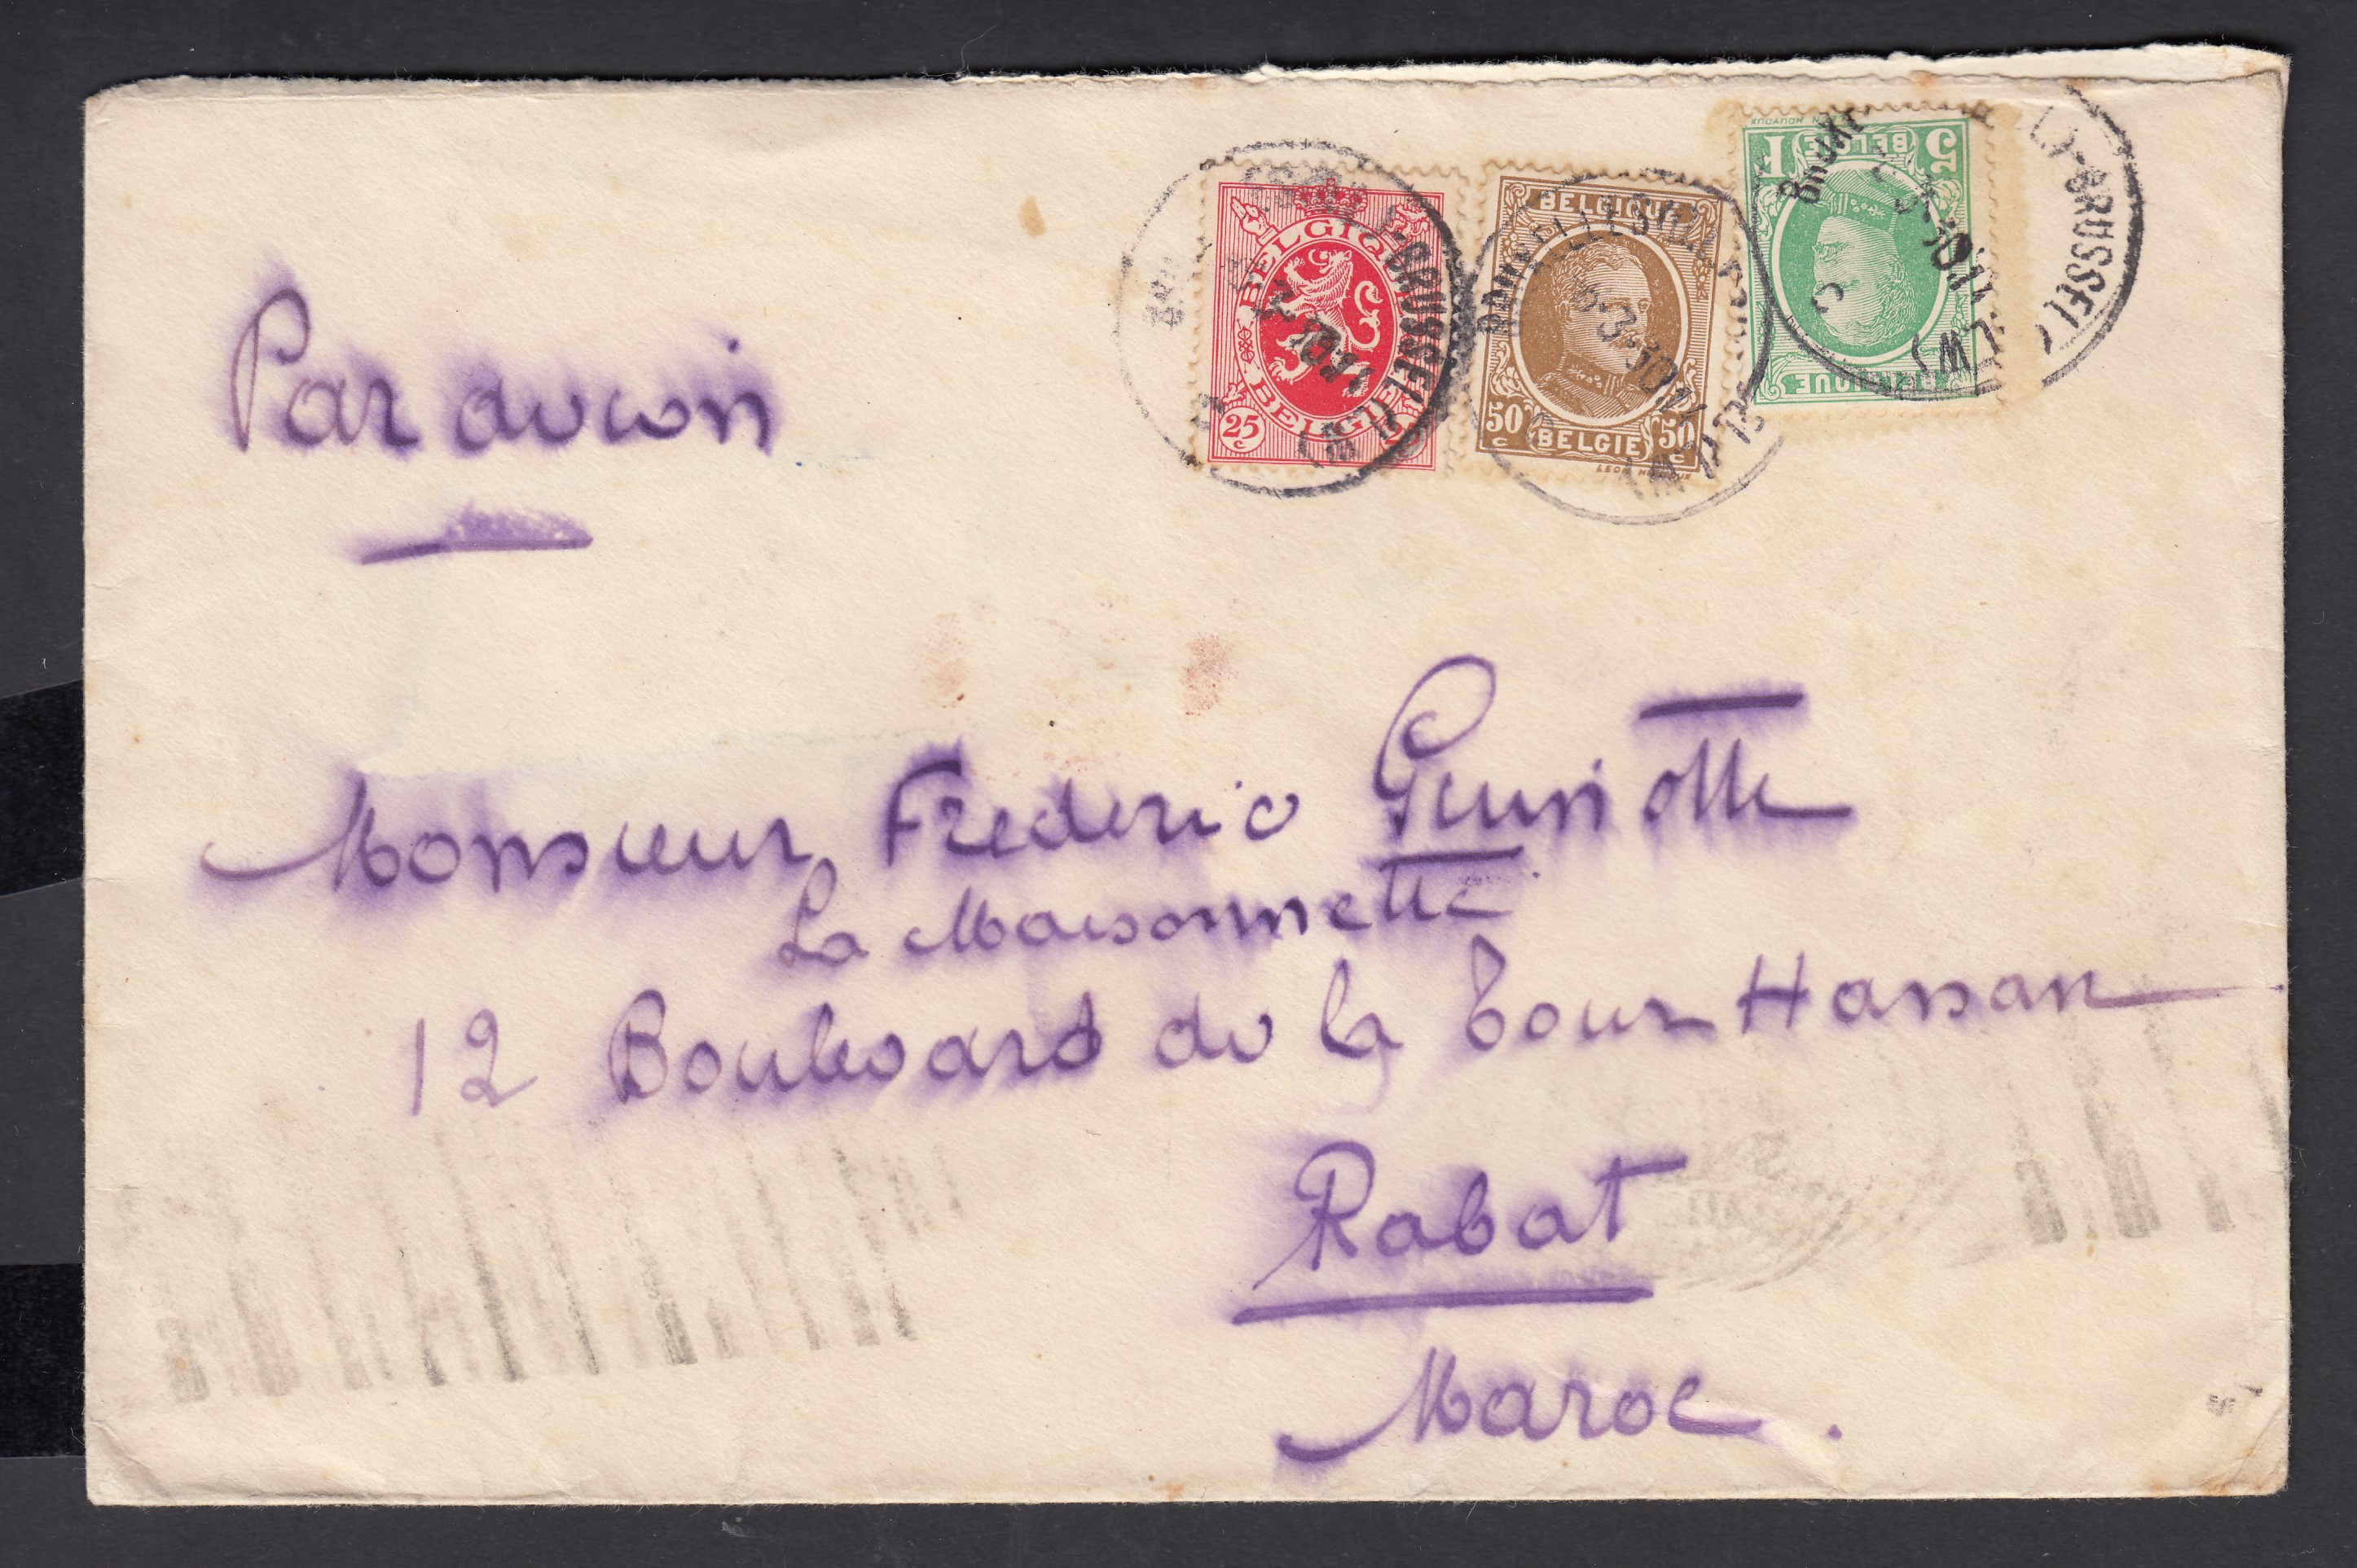 Par avion
BELGIQUE
BELGIË
25 c
BELGIQUE
50 c BELGIË 50 c
BELGIQUE
BELGIË
BRUSSEL
BRUSSEL
Monsieur Frederic Guinotte
La Maisonnette
12 Boulevard de la Tour Hassan
Rabat
Maroc.